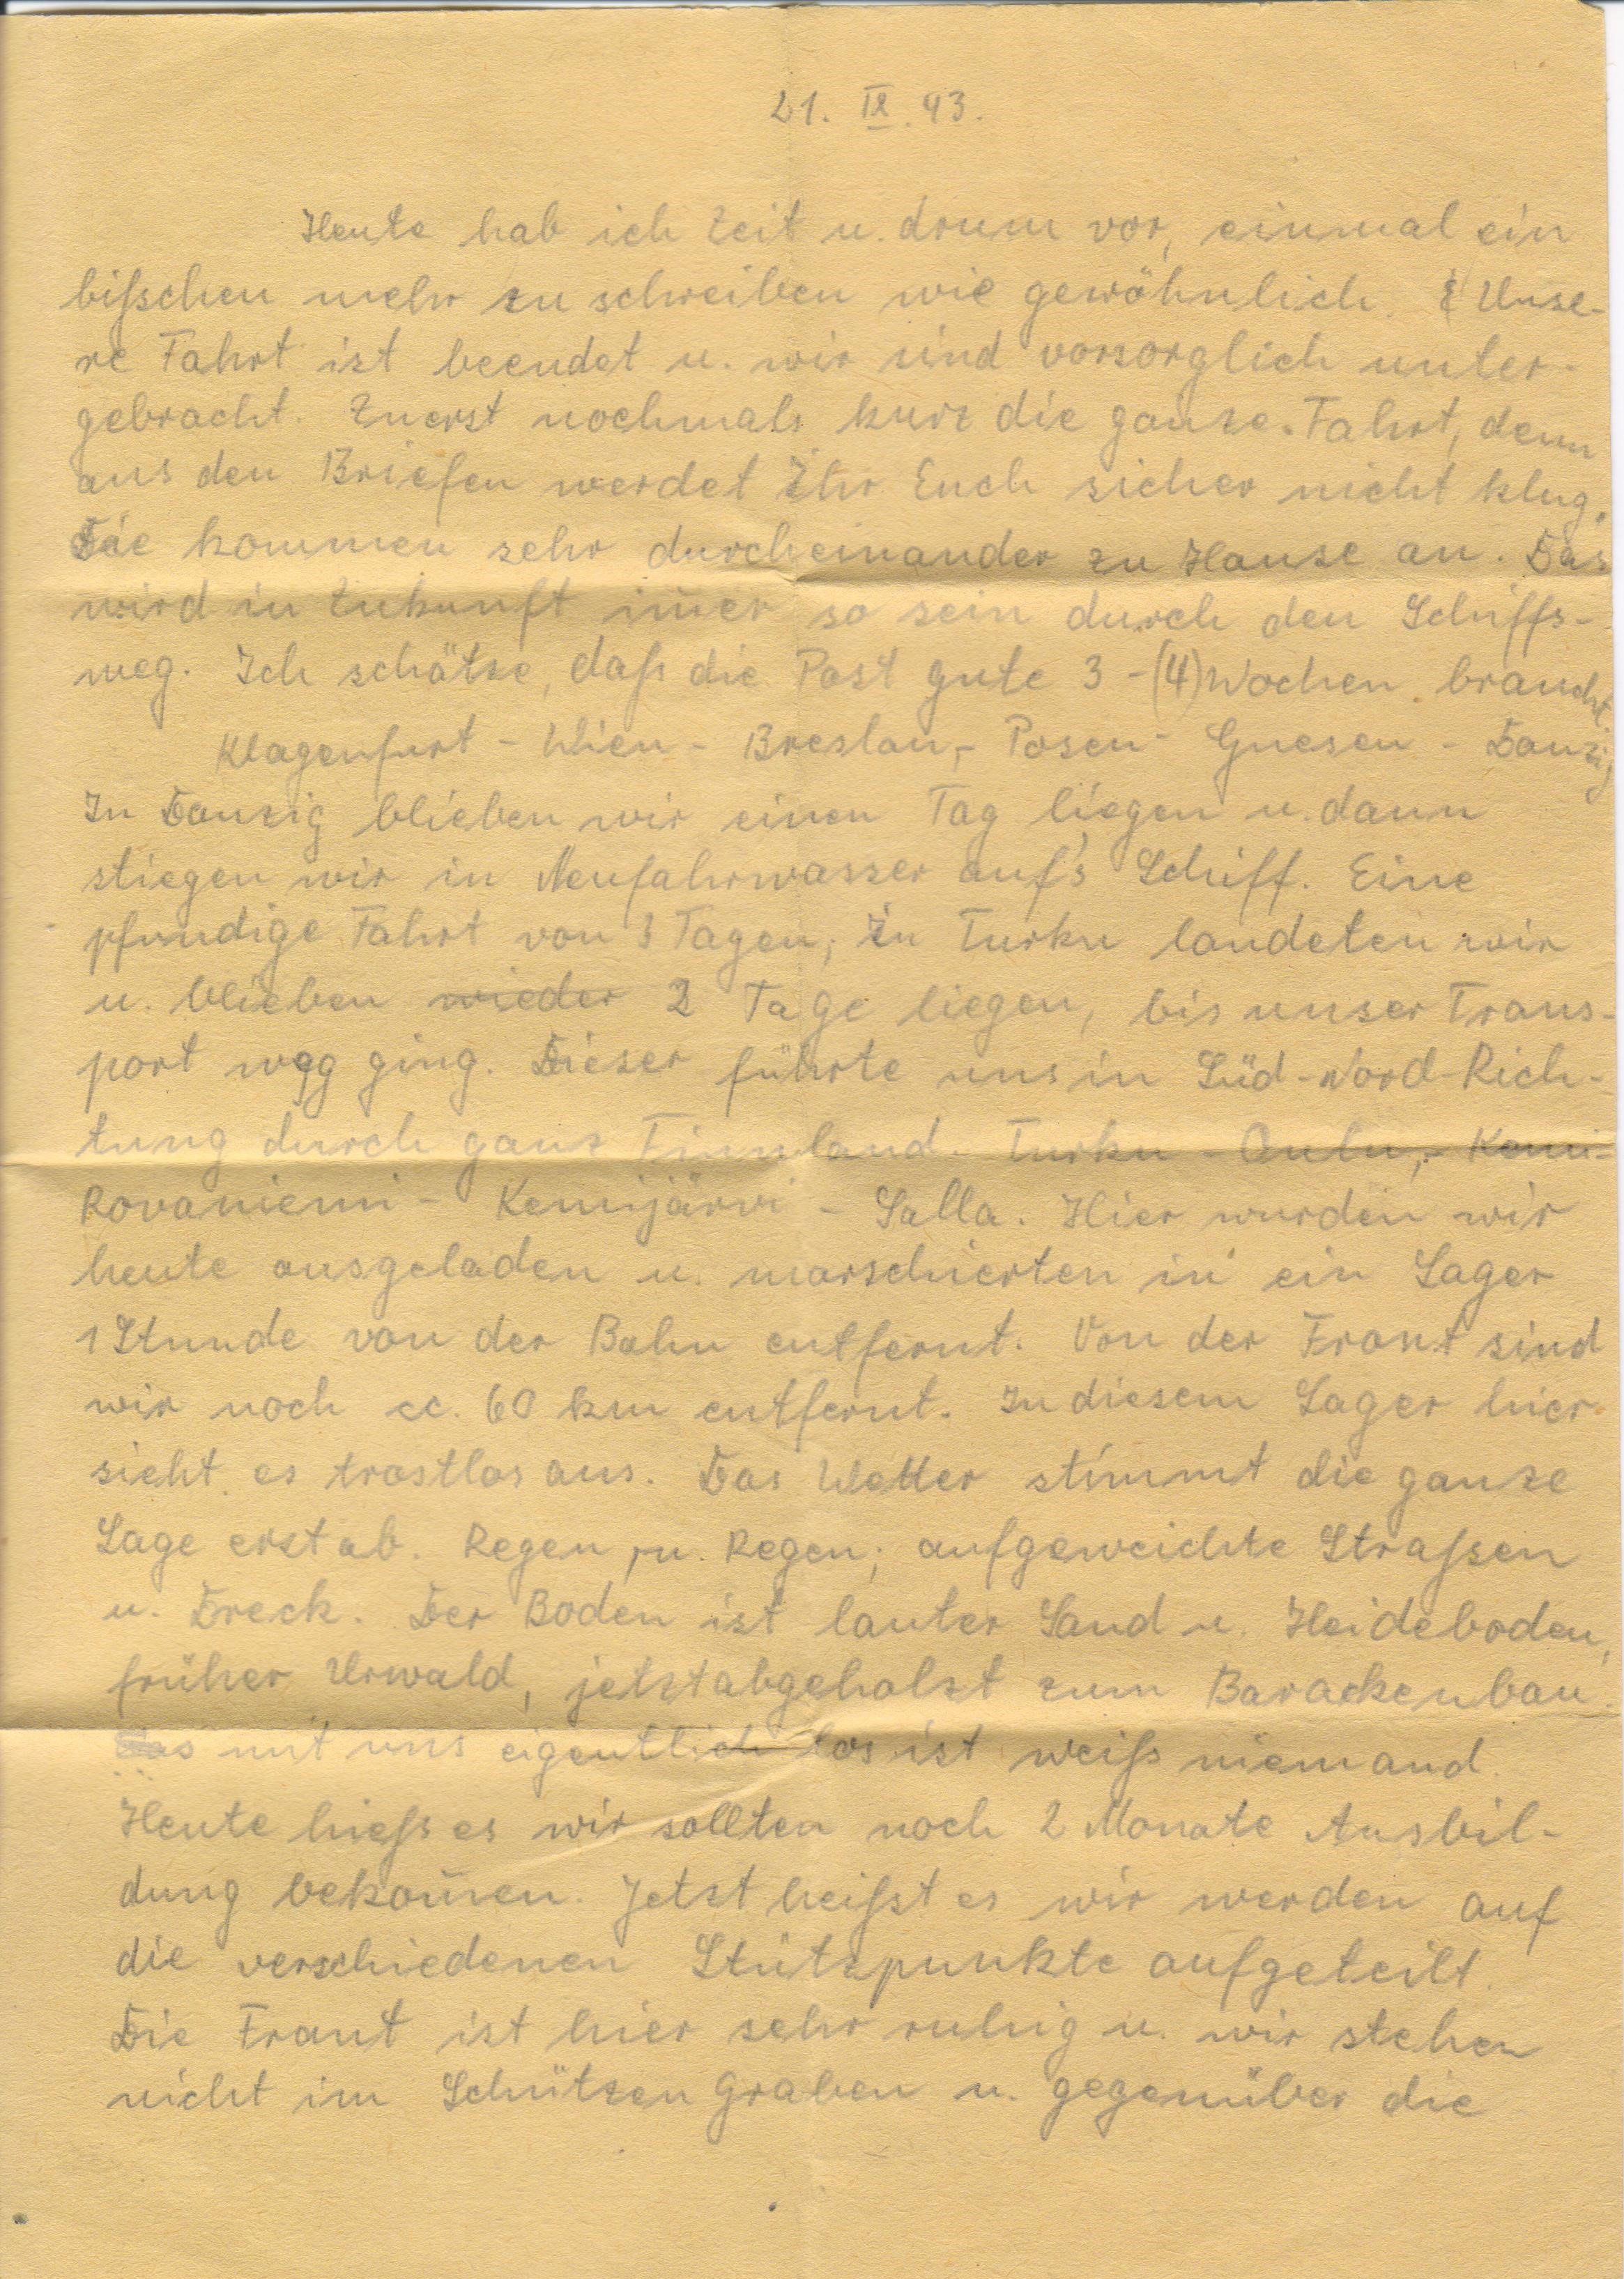 21. IX. 43.
Heute hab ich Zeit u. drum vor, einmal ein
bißchen mehr zu schreiben wie gewöhnlich. Unse-
re Fahrt ist beendet u. wir sind vorsorglich unter-
gebracht. Zuerst nochmals kurz die ganze Fahrt, denn
aus den Briefen werdet Ihr Euch sicher nicht klug.
Die kommen sehr durcheinander zu Hause an. Das
wird in Zukunft im̅er so sein durch den Schiffs-
weg. Ich schätze, daß die Post gute 3-(4) Wochen braucht.
Klagenfurt - Wien - Breslau,- Posen - Gnesen - Danzig
In Danzig blieben wir einen Tag liegen u. dann
stiegen wir in Neufahrwasser auf's Schiff. Eine
pfundige Fahrt von 3 Tagen; In Turku landeten wir
u. blieben wieder 2 Tage liegen, bis unser Trans-
port weg ging. Dieser führte uns in Süd-Nord-Rich-
tung durch ganz Finnland. Turku - Oulu,- Kemi-
Rovaniemi - Kemijärvi - Salla. Hier wurden wir
heute ausgeladen u. marschierten in ein Lager
1 Stunde von der Bahn entfernt. Von der Front sind
wir noch cc. 60 km entfernt. In diesem Lager hier
sieht es trostlos aus. Das Wetter stimmt die ganze
Lage erst ab. Regen, u. Regen; aufgeweichte Straßen
u. Dreck. Der Boden ist lauter Sand u. Heideboden,
früher Urwald, jetzt abgeholzt zum Barackenbau.
Was mit uns eigentlich los ist weiß niemand.
Heute hieß es wir sollten noch 2 Monate Ausbil-
dung bekom̅en. Jetzt heißt es wir werden auf
die verschiedenen Stützpunkte aufgeteilt.
Die Front ist hier sehr ruhig u. wir stehen
nicht im Schützen Graben u. gegenüber die